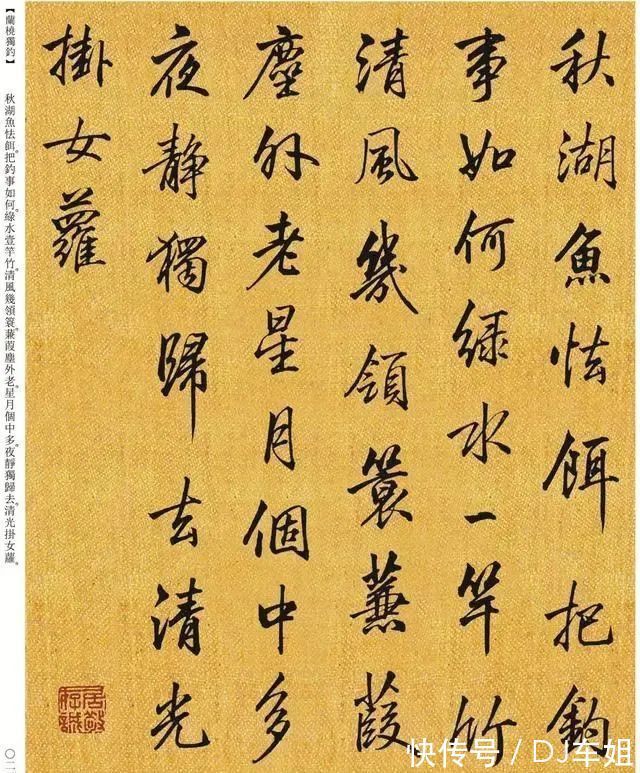 秋湖魚怯餌把釣
事如何綠水一竿竹
清風幾領簑蒹葭
塵外老星月個中多
夜静獨歸去清光
掛女蘿
居敬存誠
【蘭橈獨釣】 秋湖魚怯餌。把釣事如何。綠水壹竿竹。清風幾領簑。蒹葭塵外老。星月個中多。夜靜獨歸去。清光掛女蘿。
快传号 / DJ车姐